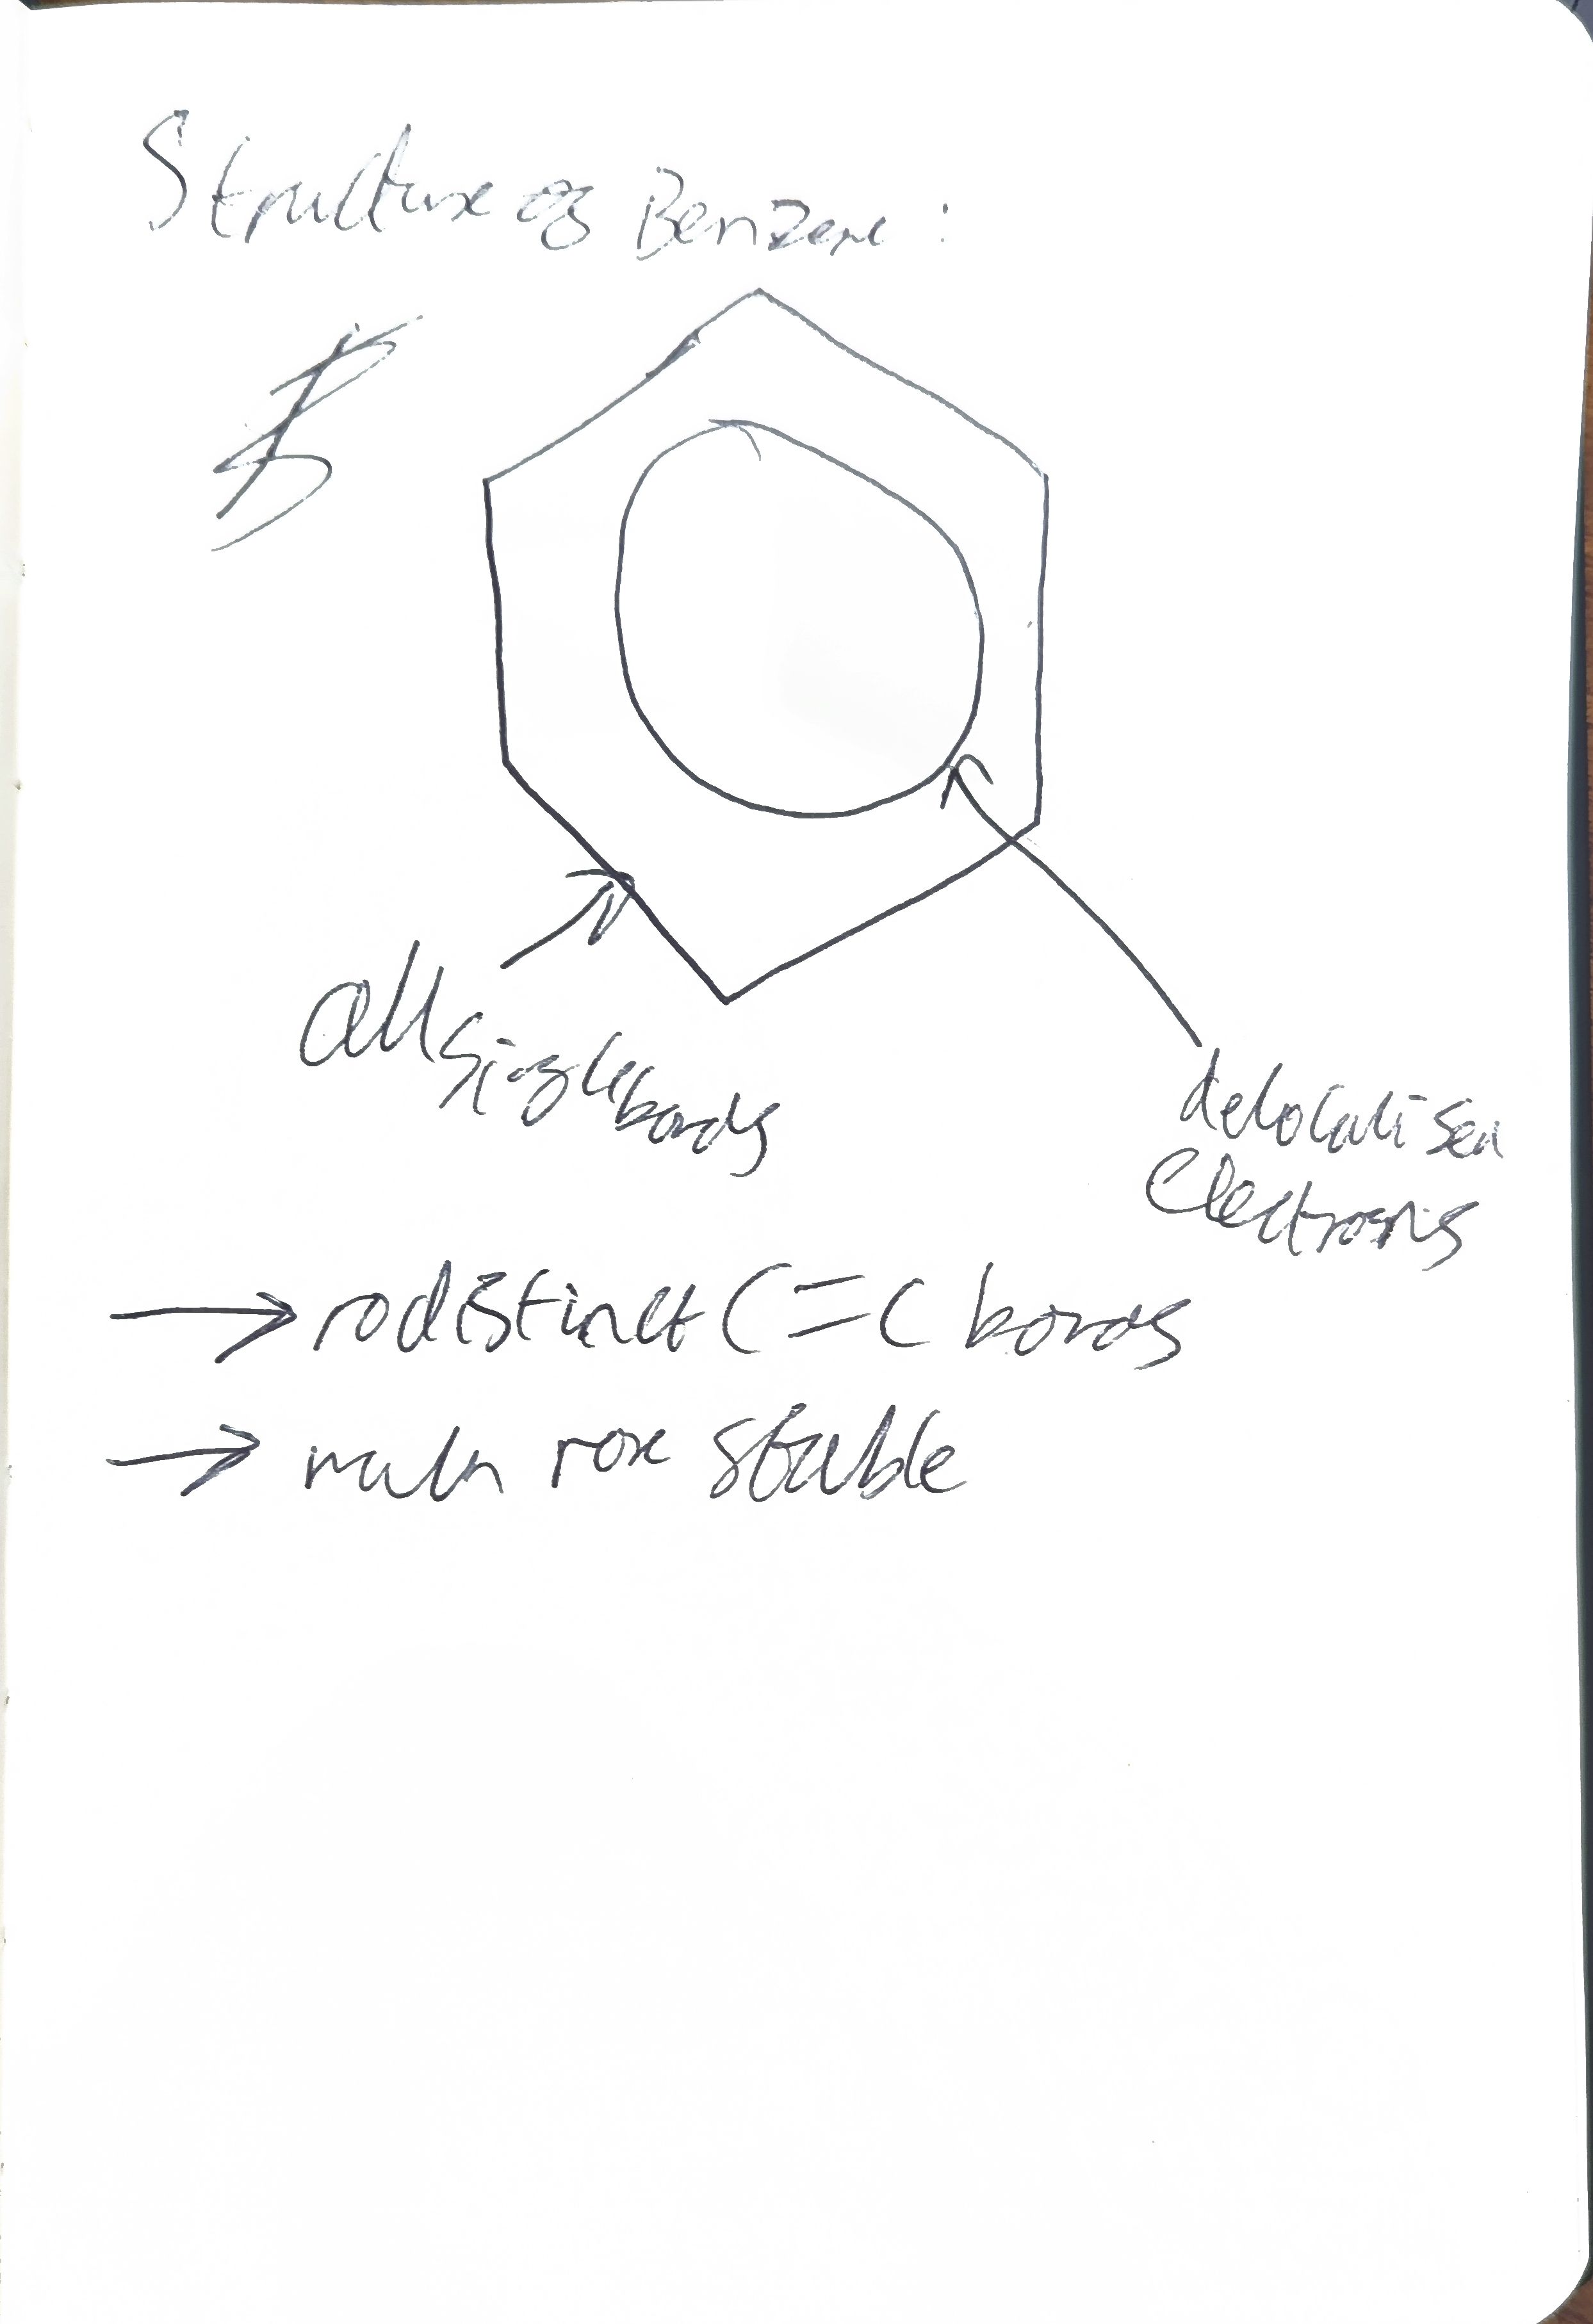 Structure of Benzene:
all single bonds
delocalised
electrons
→ no distinct C=C bonds
→ much more stable